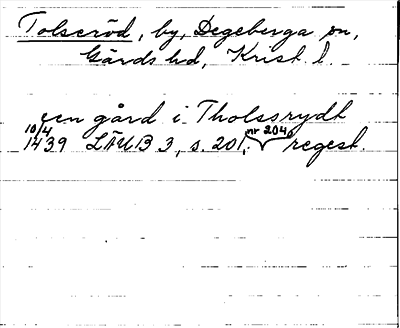 Tolseröd, by, Degeberga sn,
Gärds hd, Krist. l.
een gård i Tholssrydt
10/4
1439 LÄUB 3, s. 201, nr 204, regest.